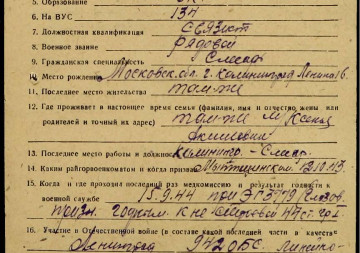 5. Образование
6. На ВУС 134
7. Должностная квалификация Связист
8. Военное звание рядовой
9. Гражданская специальность Слесарь
10. Место рождения Московск. обл. г. Калининград Ленина 6.
11. Последнее место жительства там-же
12. Где проживает в настоящее время семья (фамилия, имя и отчество жены или
родителей и точный их адрес) там-же м. Ксения
13. Последнее место работы и должность Калинингр. - Слесарь
14. Каким райгорвоенкоматом и когда призван Мытищинским 12.10.43.
15. Когда и где проходил последн. раз медкомиссию и результат годности к
военной службе 15.9.44 при ЭГ 3779
призн. годным к не строевой
16. Участие в Отечественной войне (в составе какой последней части в качестве
Ленинград 942 ОБС. линейно-